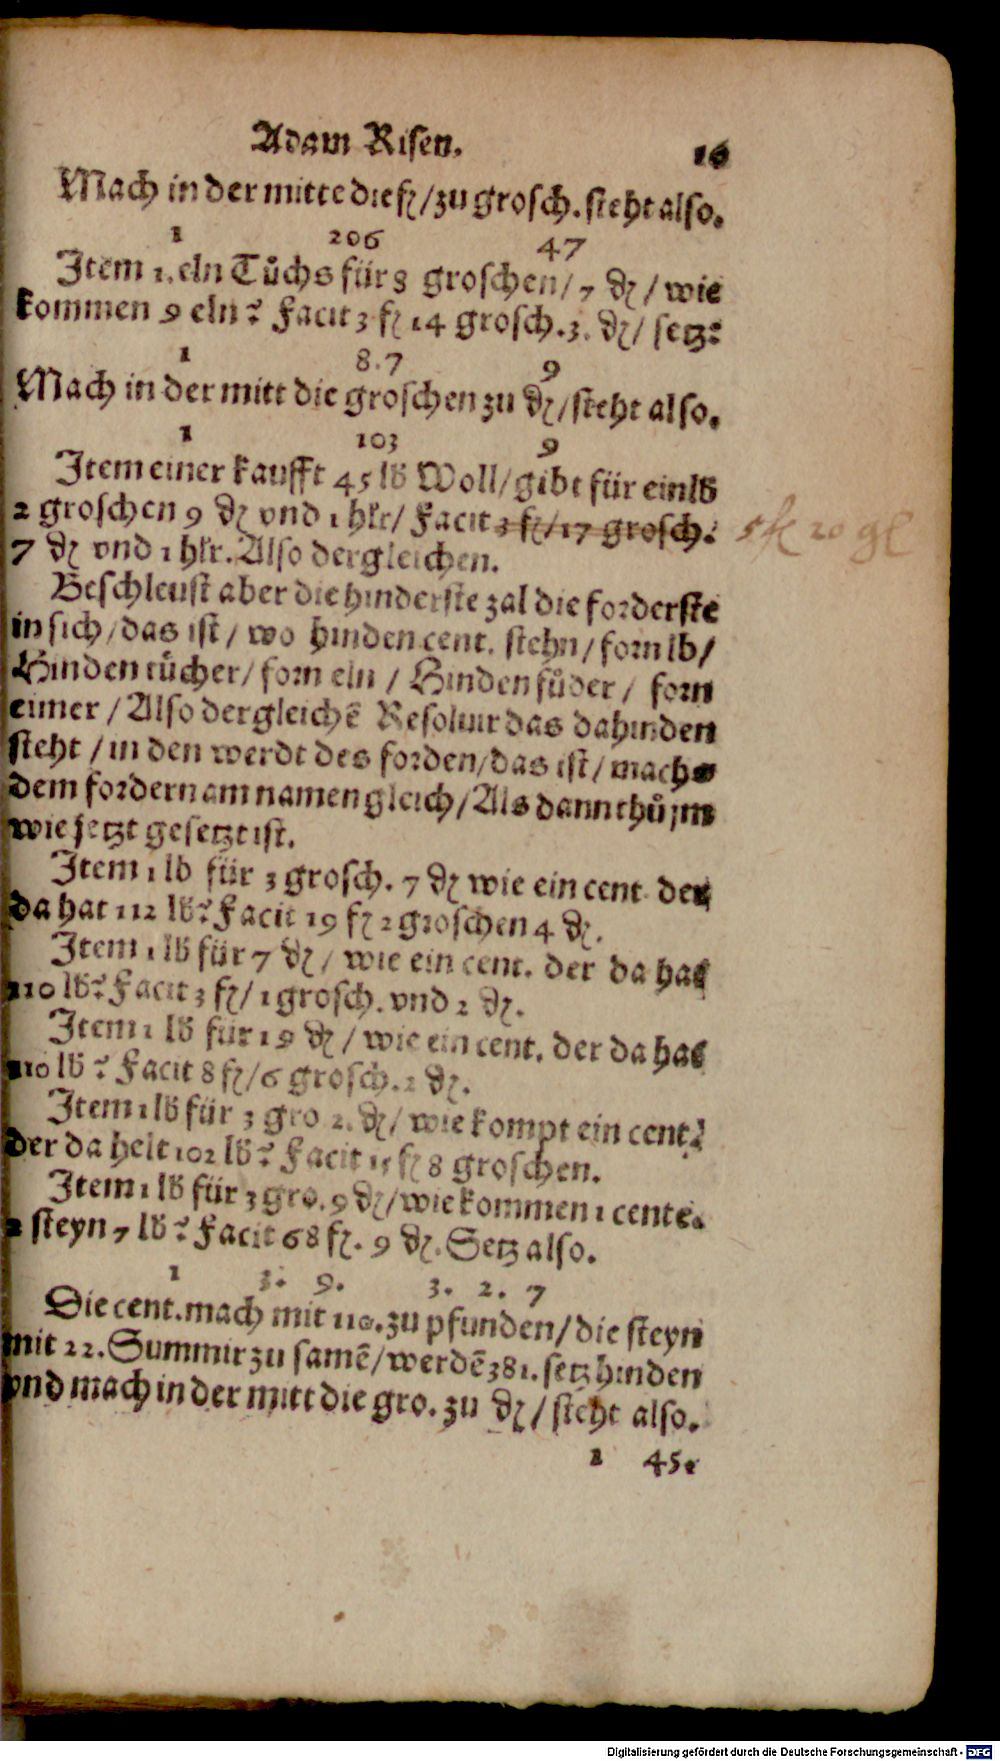 Adam Risen. 16
Mach in der mitte die fl/zu grosch. steht also.
1 206 47
Item 1. eln Tuͦchs für 8 groschen/7 ₰/wie
kommen 9 eln? Facit 3 fl 14 grosch. 3. ₰/ setz:
1 8. 7 9
Mach in der mitt die groschen zu ₰/steht also.
1 103 9
Item einer kaufft 45 lb Woll/gibt für ein lb
2 groschen 9 ₰ vnd 1 hlr/ Facit 3 fl/17 grosch. 5 fl 20 gl
7 ₰ vnd 1 hlr. Also dergleichen.
Beschleust aber die hinderste zal die forderste
in sich/das ist/ wo hinden cent. stehn/forn lb/
Hinden tuͤcher/ forn eln / Hinden fuͦder / forn
eimer / Also dergleichē Resoluir das dahinden
steht / in den werdt des forden/das ist/ machs
dem fordern am namen gleich/Als dann thuͦ jm
wie jetzt gesetzt ist.
Item 1 lb für 3 grosch. 7 ₰ wie ein cent der
da hat 112 lb? Facit 19 fl 2 groschen 4 ₰.
Item 1 lb für 7 ₰/ wie ein cent. der da hat
110 lb? Facit 3 fl/ 1 grosch. vnd 2 ₰.
Item 1 lb für 19 ₰ / wie ein cent. der da hat
110 lb? Facit 8 fl/6 grosch. 2 ₰.
Item 1 lb für 3 gro 2. ₰/ wie kompt ein cent?
der da helt 102 lb? Facit 15 fl 8 groschen.
Item 1 lb für 3 gro. 9 ₰/wie kommen 1 cente.
2 steyn 7 lb? Facit 68 fl. 9 ₰. Setz also.
1 3. 9. 3. 2. 7
Die cent. mach mit 110. zu pfunden/die steyn
mit 22. Summir zu samē/werdē 381. setz hinden
vnd mach in der mitt die gro. zu ₰/steht also.
1 45.
Digitalisierung gefördert durch die Deutsche Forschungsgemeinschaft - DFG